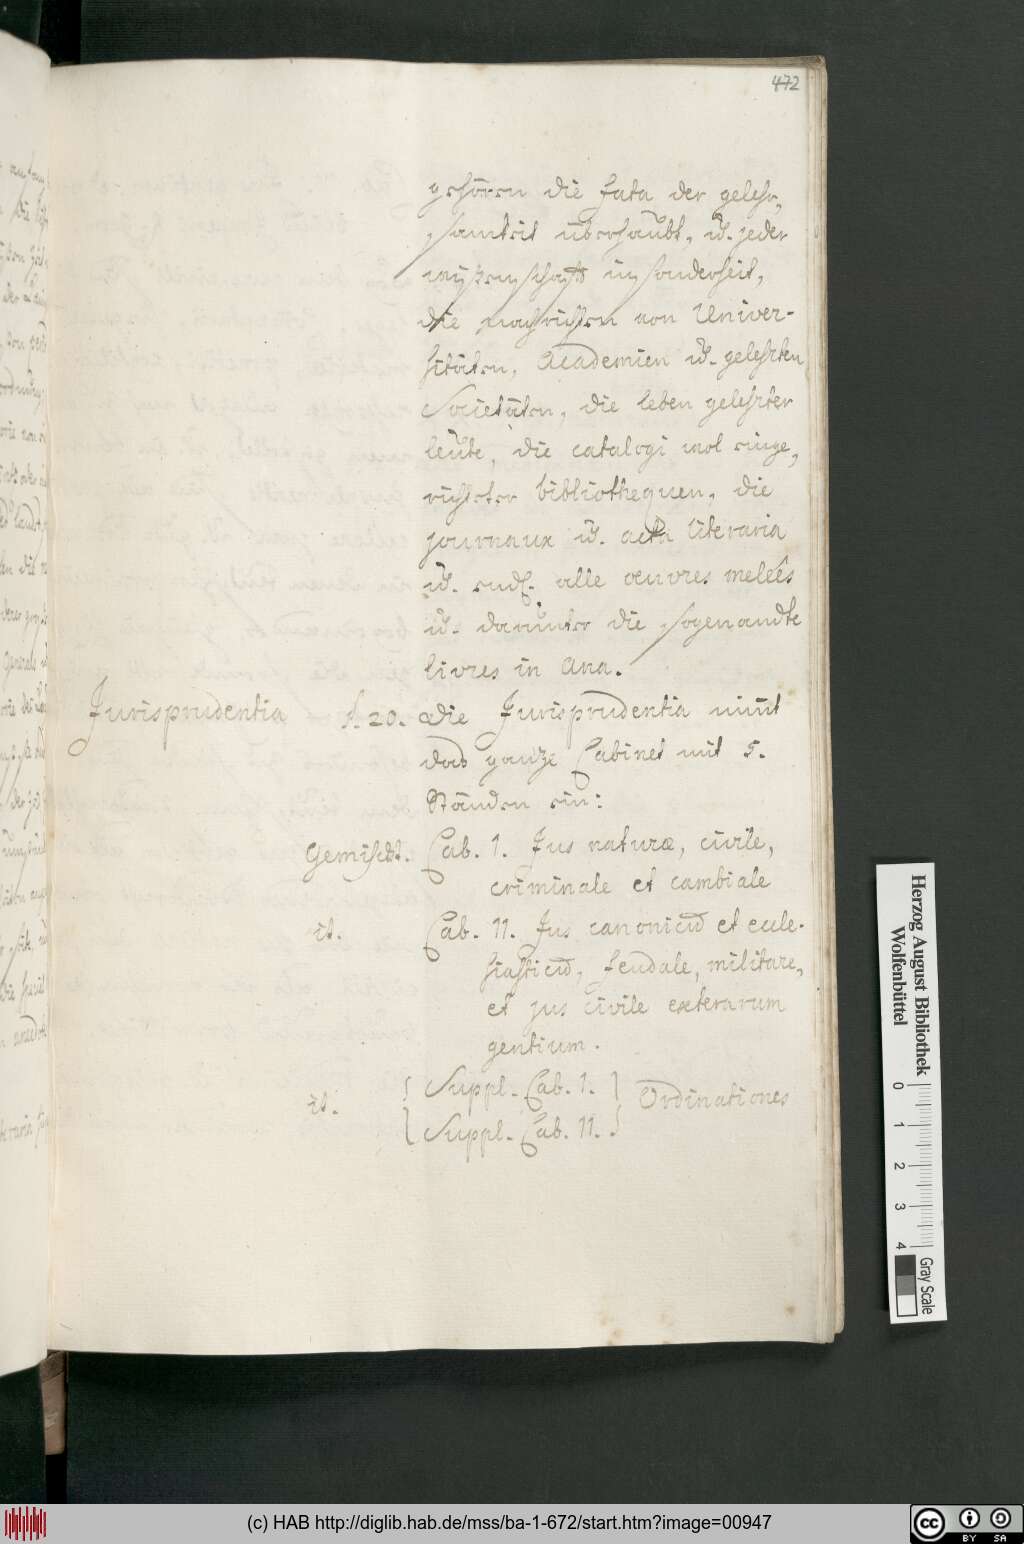 472
gehören die fata der gelehr,
samkeit überhaubt, u. jeder
wißenschafft insonderheit,
die nachrichten von Univer-
sitäten, Academien u. gelehrten
Societäten, die leben gelehrter
leute, die catalogi wol einge,
richteter bibliothequen, die
journaux u. acta literaria
u. endl. alle oeuvres meleés
u. darunter die sogenandte
livres in Ana.
Jurisprudentia §. 20. die Jurisprudentia nimt
das gantze Cabinet mit 5.
Ständen ein:
Gemischt. Cab. 1. Jus naturæ, civile,
criminale et cambiale
it. Cab. 11. Jus canonicū et eccle-
siasticū, feudale, militare,
et jus civile exterarum
gentium.
it. { Suppl. Cab. 1. } Ordinationes
{ Suppl. Cab. 11. }
Herzog August Bibliothek
Wolfenbüttel
0 1 2 3 4
Gray Scale
(c) HAB http://diglib.hab.de/mss/ba-1-672/start.htm?image=00947
cc BY SA